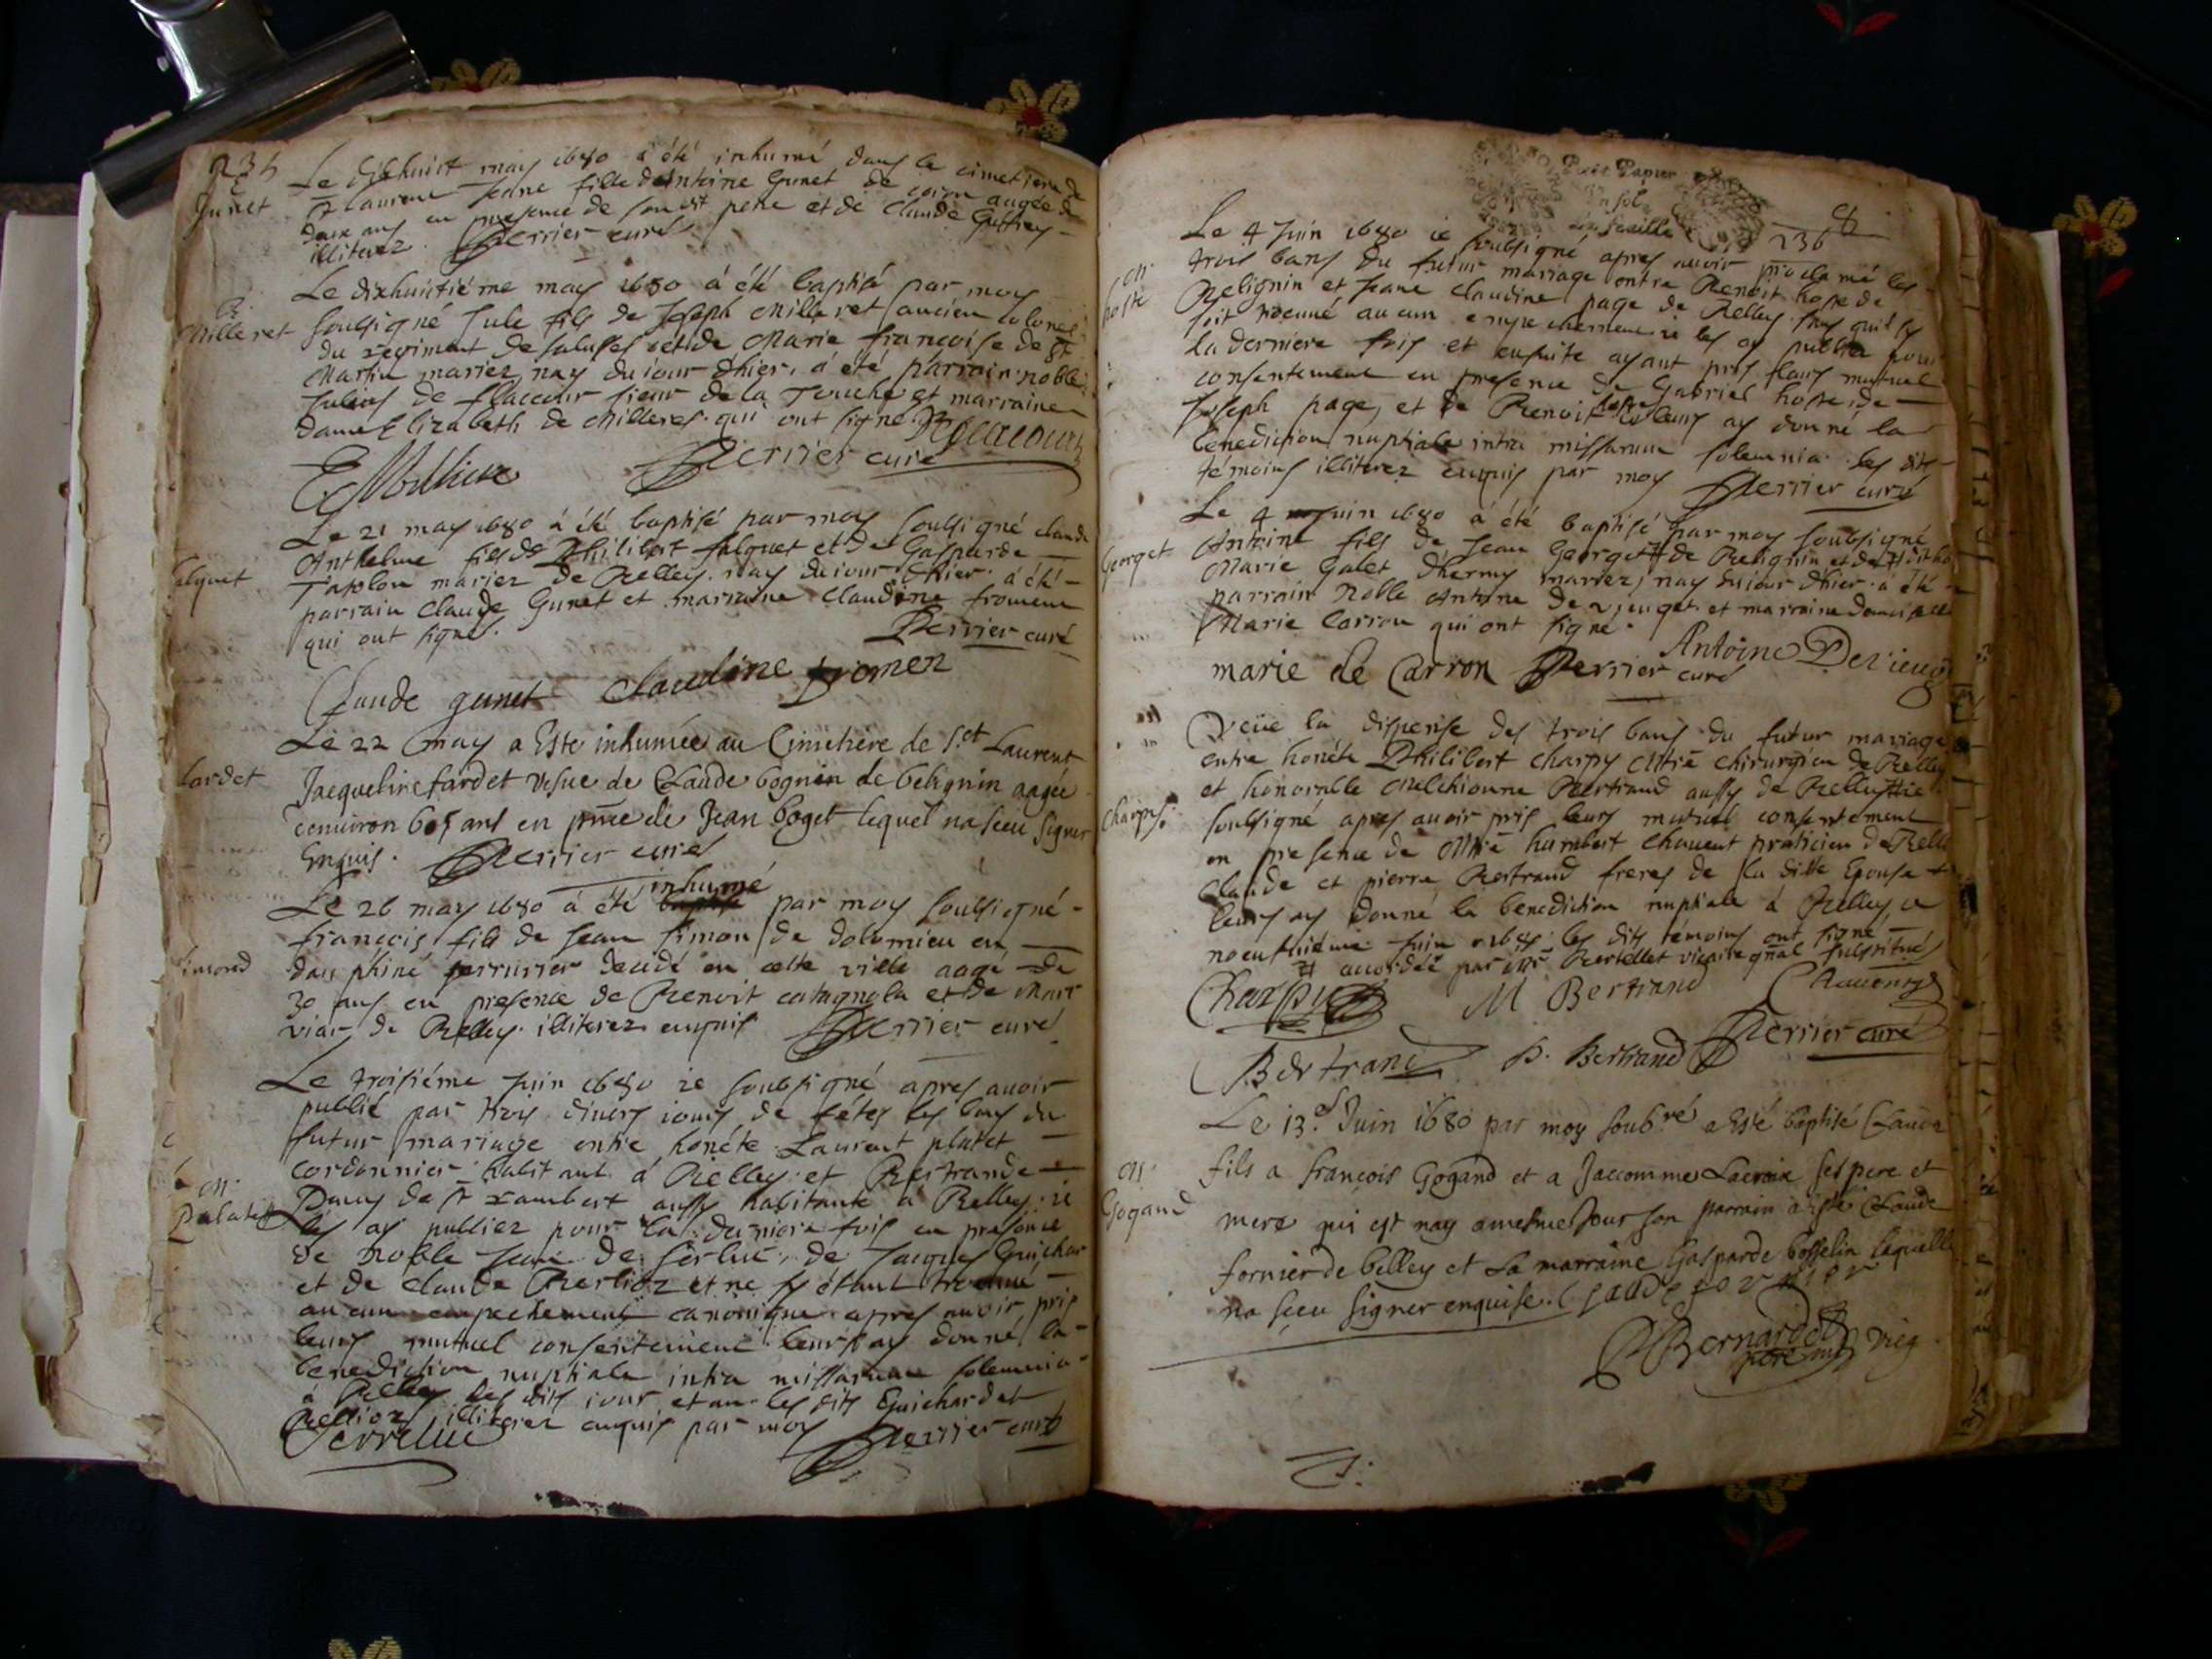 235
Gunet
Le dixhuict may 1680 a été inhumé dans le cimetiere de
St Laurent Jeane fille dAntoine Gunet de coron augée de
deux ans en presence de son dit pere et de Claude Guffrey
illiterez. Perrier curé
Milleret
Le dixhuictiéme may 1680 à été baptisé par moy
soubsigné Jule fils de Joseph Milleret ancien colonel
du regiment de saluses et de Marie françoise de St
Martin mariez nay du iour d'hier, à été parrain noble
de flaccour sieur de la Touche et marraine
dame Elizabeth de Milleret qui ont signé.
Perrier curé
falquet
Le 21 may 1680 à été baptisé par moy soubsigné claude
Anthelme fils de Philibert falquet et de Gasparde
Tapolon mariez de Belley nay du iour d'hier à été
parrain Claude Gunet et marraine Claudine froment
qui ont signé.
Perrier curé
Claude gunet Claudine fromen
Lardet
Le 22 may a Este inhumée au Cimetiere de S.ct Laurent
Jacqueline Lardet vefue de Claude bognin de belignin aagée
denuiron 65 ans en pnce de Jean boget lequel na sceu signer
Enquis. Perrier curé
Simond
Le 26 may 1680 à été inhumé par moy soubsigné
françois fils de Jean simon de dolomieu en
dauphiné serrurier decedé en cette ville aagé de
30 ans en presence de Benoit catagnola et de Marc
viar de Belley illiterez enquis Perrier curé
M.
Palatet
Le troisiéme Juin 1680 ie soubsigné apres auoir
publié par trois diuers iours de fétes les bans du
futur mariage entre honéte Laurent platet
cordonnier habitant à Belley et Bertrande
Dauy de St rambert aussy habitante à Belley ie
les ay publiez pour la derniere fois en presence
de Noble Jean de serluc, de Jacques Guichar
et de Claude Berlioz et ne sy étant treuué
aucun empechement canonique apres auoir pris
leurs mutuel consentement leurs ay donné la
benediction nuptiale intra missarum solemnia
à Belley les dits iour et an les dits Guichard et
Berlioz illiterez enquis par moy
Serreluc Perrier curé
Petit Papier
un sol
la feuille
236
M.
hoste
Le 4 Juin 1680 ie soubsigné apres auoir proclamé les
trois bans du futur mariage entre Benoit hoste de
Belignin et Jeane Claudine page de Belley sans quil sy
soit treuué aucun empechement ie les ay publiez pour
la derniere fois et ensuite ayant pris leurs mutuel
consentement en presence de Gabriel hoste de
Joseph page, et de Benoit leurs ay donné la
benediction nuptiale intra missarum solemnia les dits
témoins illiterez enquis par moy Perrier curé
Georget
Le 4 Juin 1680 à été baptisé par moy soubsigné
Antoine fils de Jean Georget de Belignin et de
Marie Galet dhermy mariez, nay du iour dhier à été
parrain Noble Antoine de vieuget et marraine damoiselle
Marie Carron qui ont signé.
Antoine Devieuget
marie de Carron Perrier curé
Charpy
Veüe la dispense des trois bans du futur mariage
entre honéte Philibert Charpy Mtre chirurgien de Belley
et honorable Melchionne Bertrand aussy de Belley ie
soubsigné apres auoir pris leurs mutuel consentement
en presence de Mtre humbert Chauent praticien de Belley
Claude et pierre Bertrand freres de la ditte Epouse
leurs ay donné la benediction nuptiale à Belley ce
neufuiéme Juin 1680 les dits témoins ont signé
accordée par Mr Bertellet vicaire gnal substitué
Charpy M Bertrand Chauent
Bertrand P. Bertrand Perrier curé
M.
Gogand
Le 13.e Juin 1680 par moy soubné a Esté baptisé Claude
fils a françois Gogand et a Jaccomme Lacroix ses pere et
mere qui est nay a mesme Jour son parrain a Esté Claude
fornier de belley et La marraine Gasparde bosselin laquelle
na sceu signer enquise. Claude fornier
Bernardet vic